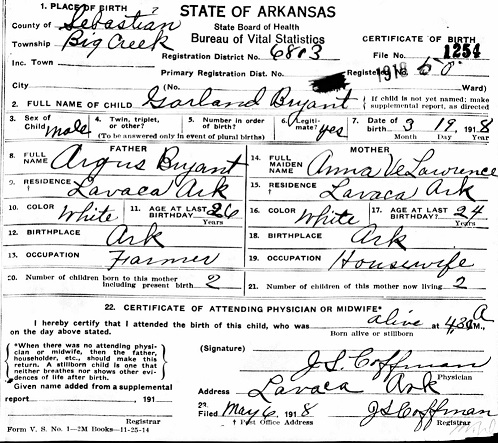 1. PLACE OF BIRTH
STATE OF ARKANSAS
County of Sebastian
State Board of Health
Bureau of Vital Statistics
CERTIFICATE OF BIRTH
Township Big Creek
Registration District No. 6803
File No. 1254
Inc. Town
Primary Registration Dist. No.
1918
Registered No. 50
City
(No.
Ward)
2. FULL NAME OF CHILD Garland Bryant
If child is not yet named; make supplemental report, as directed
3. Sex of Child male
4. Twin, triplet, or other?
5. Number in order of birth?
(To be answered only in event of plural births)
6. Legitimate? yes
7. Date of birth 3 19, 1918
Month Day Year
FATHER
8. FULL NAME Argus Bryant
MOTHER
14. FULL MAIDEN NAME Anna Ve Lawrence
9. RESIDENCE Lavaca Ark
15. RESIDENCE Lavaca Ark
10. COLOR White
11. AGE AT LAST BIRTHDAY 26 Years
16. COLOR White
17. AGE AT LAST BIRTHDAY? 24 Years
12. BIRTHPLACE Ark
18. BIRTHPLACE Ark
13. OCCUPATION Farmer
19. OCCUPATION Housewife
20. Number of children born to this mother including present birth 2
21. Number of children of this mother now living 2
22. CERTIFICATE OF ATTENDING PHYSICIAN OR MIDWIFE*
I hereby certify that I attended the birth of this child, who was alive at 4:30 A
on the day above stated.
Born alive or stillborn
*When there was no attending physician or midwife, then the father, householder, etc., should make this return. A stillborn child is one that neither breathes nor shows other evidences of life after birth.
(Signature) J.S. Coffman
Physician
Given name added from a supplemental
report 191
Address Lavaca Ark
Registrar
23. Filed May 6, 1918 JS Coffman
† Post Office Address
Registrar
Form V. S. No. 1—2M Books—11-25-14